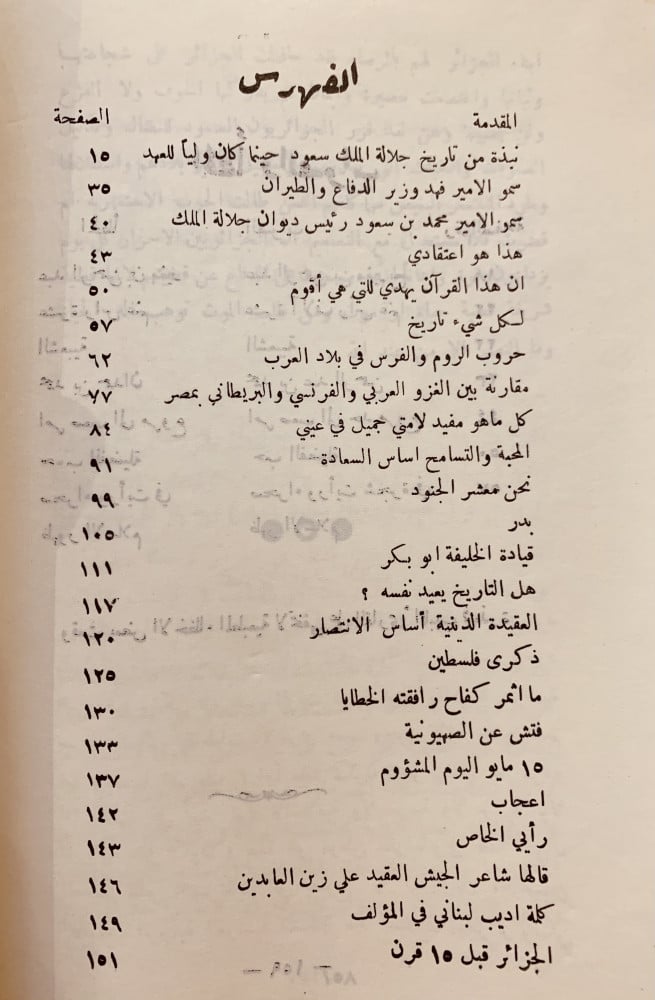 الفهرس
المقدمة الصفحة
نبذة من تاريخ جلالة الملك سعود حينما كان ولياً للعهد ١٥
سمو الامير فهد وزير الدفاع والطيران ٣٥
سمو الامير محمد بن سعود رئيس ديوان جلالة الملك ٤٠
هذا هو اعتقادي ٤٣
ان هذا القرآن يهدي للتي هي أقوم ٥٠
لكل شيء تاريخ ٥٧
حروب الروم والفرس في بلاد العرب ٦٢
مقارنة بين الغزو العربي والفرنسي والبريطاني بمصر ٧٧
كل ماهو مفيد لامتي جميل في عيني ٨٤
المحبة والتسامح اساس السعادة ٩١
نحن معشر الجنود ٩٩
بدر ١٠٥
قيادة الخليفة ابو بكر ١١١
هل التاريخ يعيد نفسه ؟ ١١٧
العقيدة الدينية أساس الانتصار ١٢٠
ذكرى فلسطين ١٢٥
ما اثمر كفاح رافقته الخطايا ١٣٠
فتش عن الصهيونية ١٣٣
١٥ مايو اليوم المشؤوم ١٣٧
اعجاب ١٤٢
رأيي الخاص ١٤٣
قالها شاعر الجيش العقيد علي زين العابدين ١٤٦
كلمة اديب لبناني في المؤلف ١٤٩
الجزائر قبل ١٥ قرن ١٥١